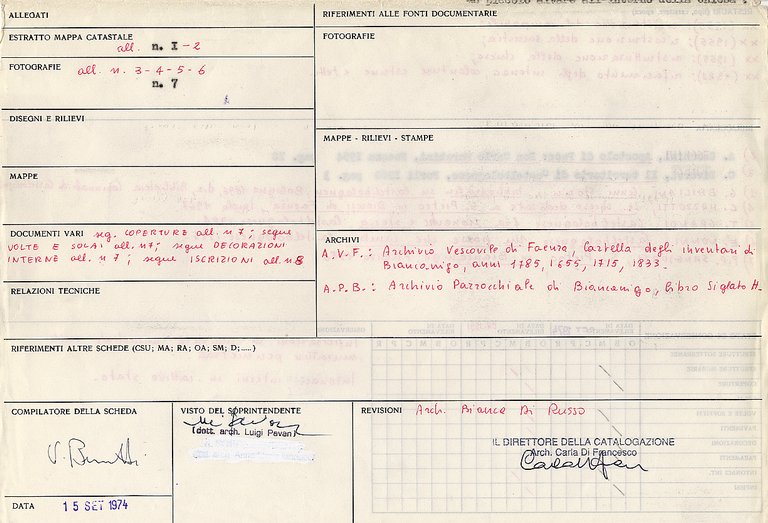 ALLEGATI
ESTRATTO MAPPA CATASTALE
all. n. I-2
FOTOGRAFIE all. n. 3-4-5-6
n. 7
DISEGNI E RILIEVI
MAPPE
DOCUMENTI VARI seg. COPERTURE all. n 7; segue
VOLTE E SOLAI all. n7; segue DECORAZIONI
INTERNE all. n 7; segue ISCRIZIONI all. n 8
RELAZIONI TECNICHE
RIFERIMENTI ALLE FONTI DOCUMENTARIE
FOTOGRAFIE
MAPPE - RILIEVI - STAMPE
ARCHIVI
A.V.F.: Archivio Vescovile di Faenza, Cartella degli inventari di
Biancanigo, anni 1785, 1655, 1715, 1833.
A.P.B.: Archivio Parrocchiale di Biancanigo, libro Siglato H.
RIFERIMENTI ALTRE SCHEDE (CSU; MA; RA; OA; SM; D;.....)
COMPILATORE DELLA SCHEDA
DATA 15 SET 1974
VISTO DEL SOPRINTENDENTE
(dott. arch. Luigi Pavan)
REVISIONI Arch. Bianca Di Russo
IL DIRETTORE DELLA CATALOGAZIONE
Arch. Carla Di Francesco